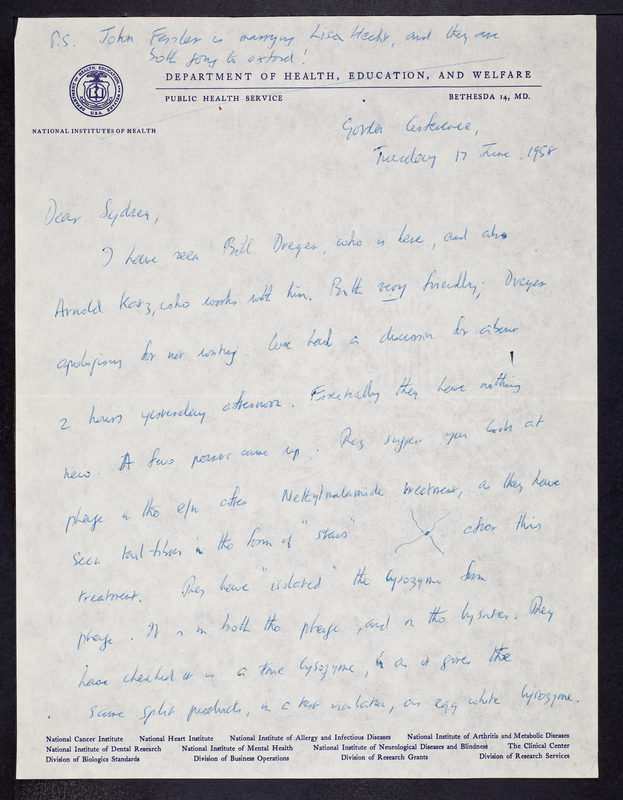 P.S. John Fessler is marrying Lisa Hecht, and they are
both going to Oxford!
DEPARTMENT OF HEALTH, EDUCATION, AND WELFARE
PUBLIC HEALTH SERVICE BETHESDA 14, MD.
DEPARTMENT OF HEALTH, EDUCATION, AND WELFARE
U.S.A
NATIONAL INSTITUTES OF HEALTH
Gordon Conference,
Tuesday 17 June, 1958
Dear Sydney,
I have seen Bill Dreyer, who is here, and also
Arnold Katz, who works with him. Both very friendly; Dreyer
apologising for not writing. We had a discussion for about
2 hours yesterday afternoon. Essentially they have nothing
new. A few points came up. They suggest you look at
phage in the e/m after N-ethylmalamide treatment, as they have
seen tail-fibres in the form of "stars" after this
treatment. They have "isolated" the lysozyme from
phage. It is in both the phage, and in the lysates. They
have checked it is a true lysozyme, as it gives the
same split products, in a test isolation, as egg white lysozyme.
National Cancer Institute National Heart Institute National Institute of Allergy and Infectious Diseases National Institute of Arthritis and Metabolic Diseases
National Institute of Dental Research National Institute of Mental Health National Institute of Neurological Diseases and Blindness The Clinical Center
Division of Biologics Standards Division of Business Operations Division of Research Grants Division of Research Services